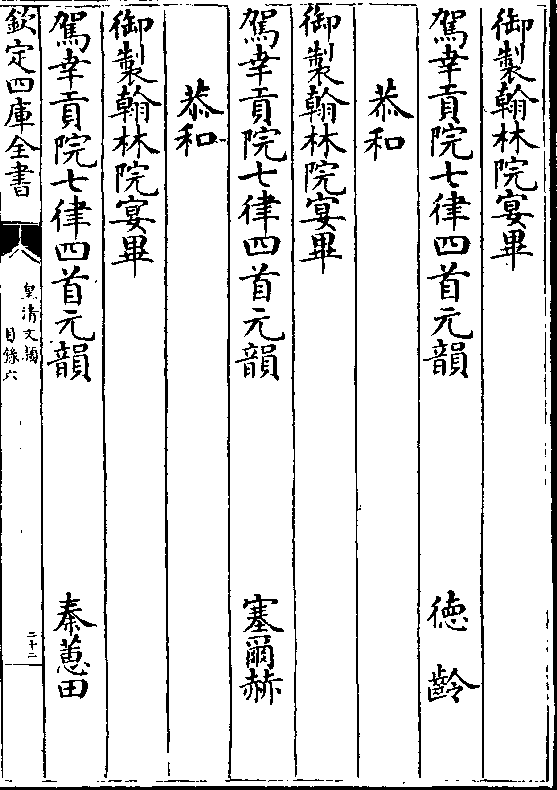 御製翰林院宴畢
駕幸貢院七律四首元韻 德齡
恭和
御製翰林院宴畢
駕幸貢院七律四首元韻 塞爾赫
恭和
御製翰林院宴畢
駕幸貢院七律四首元韻 秦蕙田
欽定四庫全書
皇清文穎
目錄六
二十二